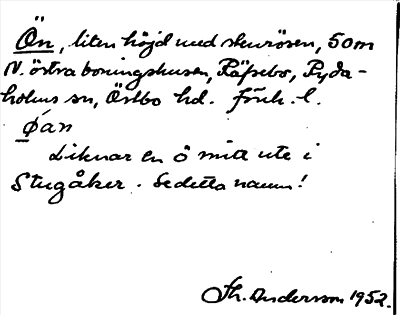 Ön, liten höjd med stenrösen, 50m
N. östra boningshusen, Räfsebo, Ryda-
holms sn, Östbo hd. Jönk. l.
øʹan
Liknar en ö mitt ute i
Stugåker. Se detta namn!
Th. Andersson 1952.